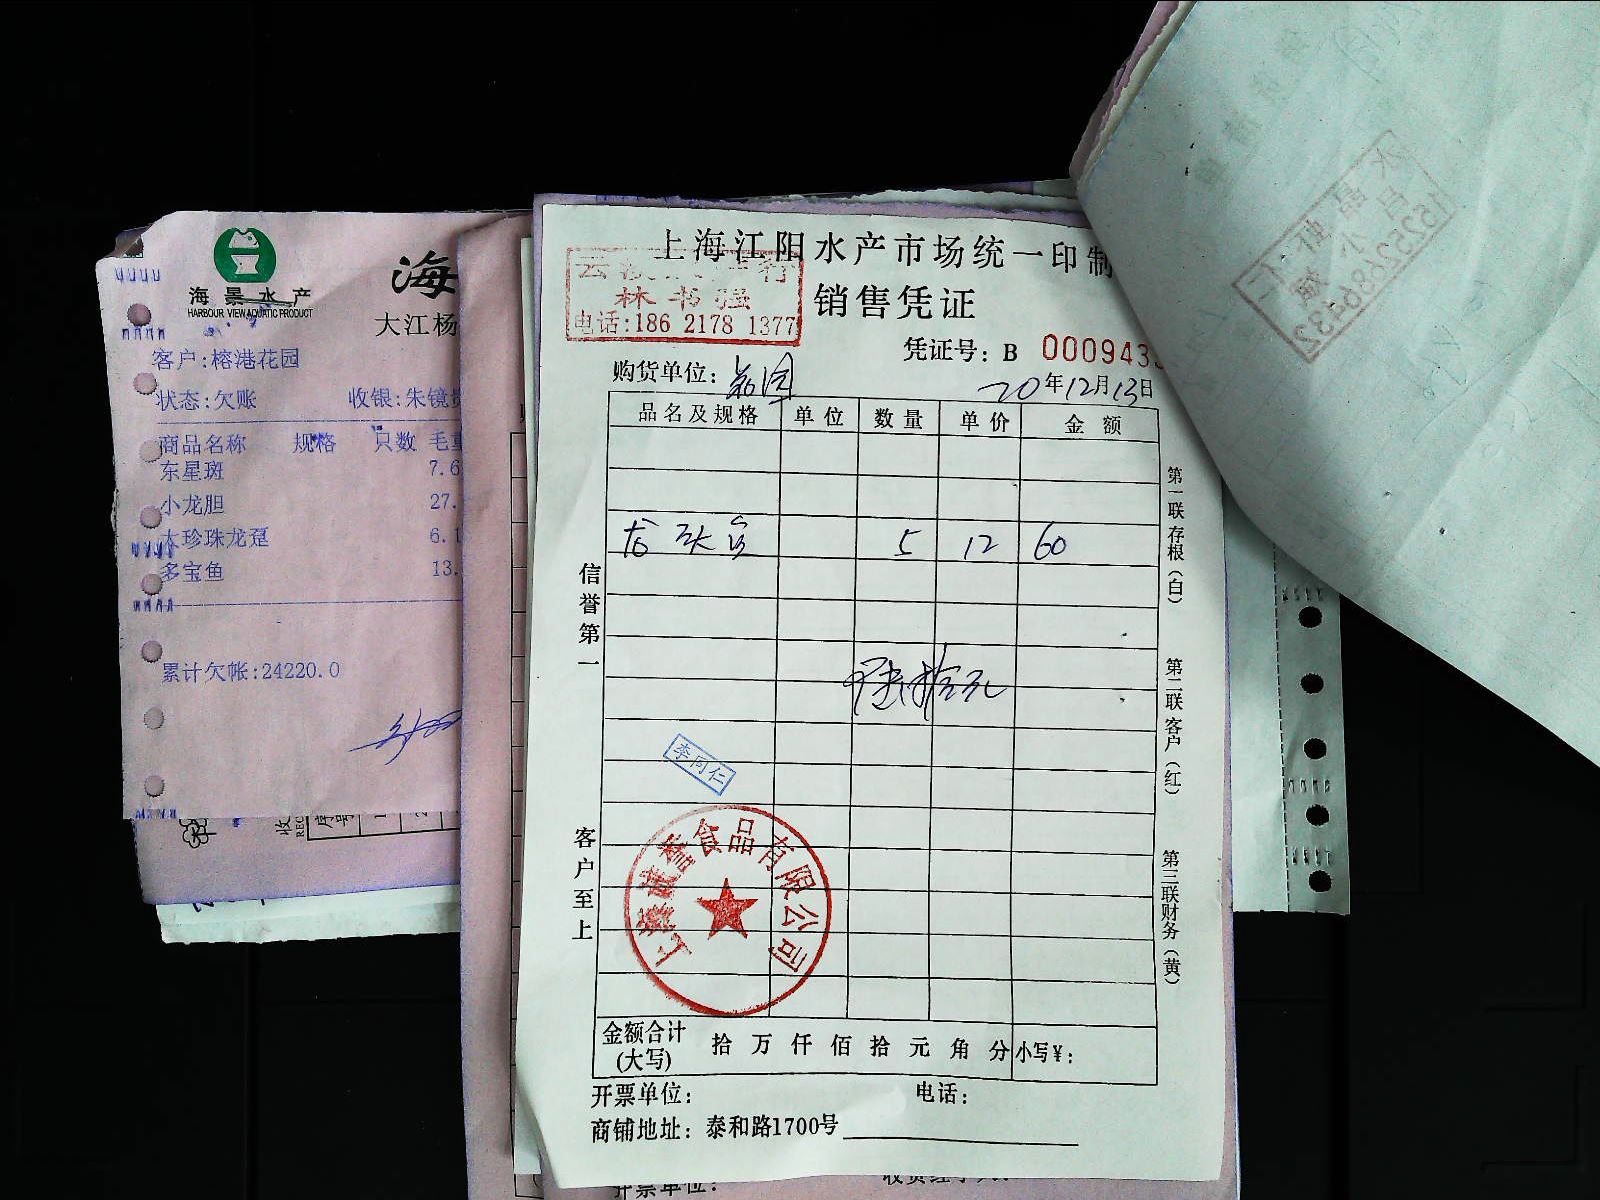 海景水产
HARBOUR VIEW AQUATIC PRODUCT
海
大江杨
客户:榕港花园
状态:欠账 收银:朱镜
商品名称 规格 只数 毛重
东星斑 7.6
小龙胆 27.
大珍珠龙趸 6.1
多宝鱼 13.
累计欠帐:24220.0
收
REC
序号
上海江阳水产市场统一印制
林书强
电话:186 2178 1377
销售凭证
凭证号: B 000943
购货单位:
20年12月13日
品名及规格 单位 数量 单价 金额
5 12 60
陆拾元
李同仁
上海诚鲞食品有限公司
信誉第一
客户至上
第一联存根(白)
第二联客户(红)
第三联财务(黄)
金额合计(大写) 拾 万 仟 佰 拾 元 角 分 小写¥:
开票单位: 电话:
商铺地址: 泰和路1700号
开票单位:
水晶虾仁
15252686432